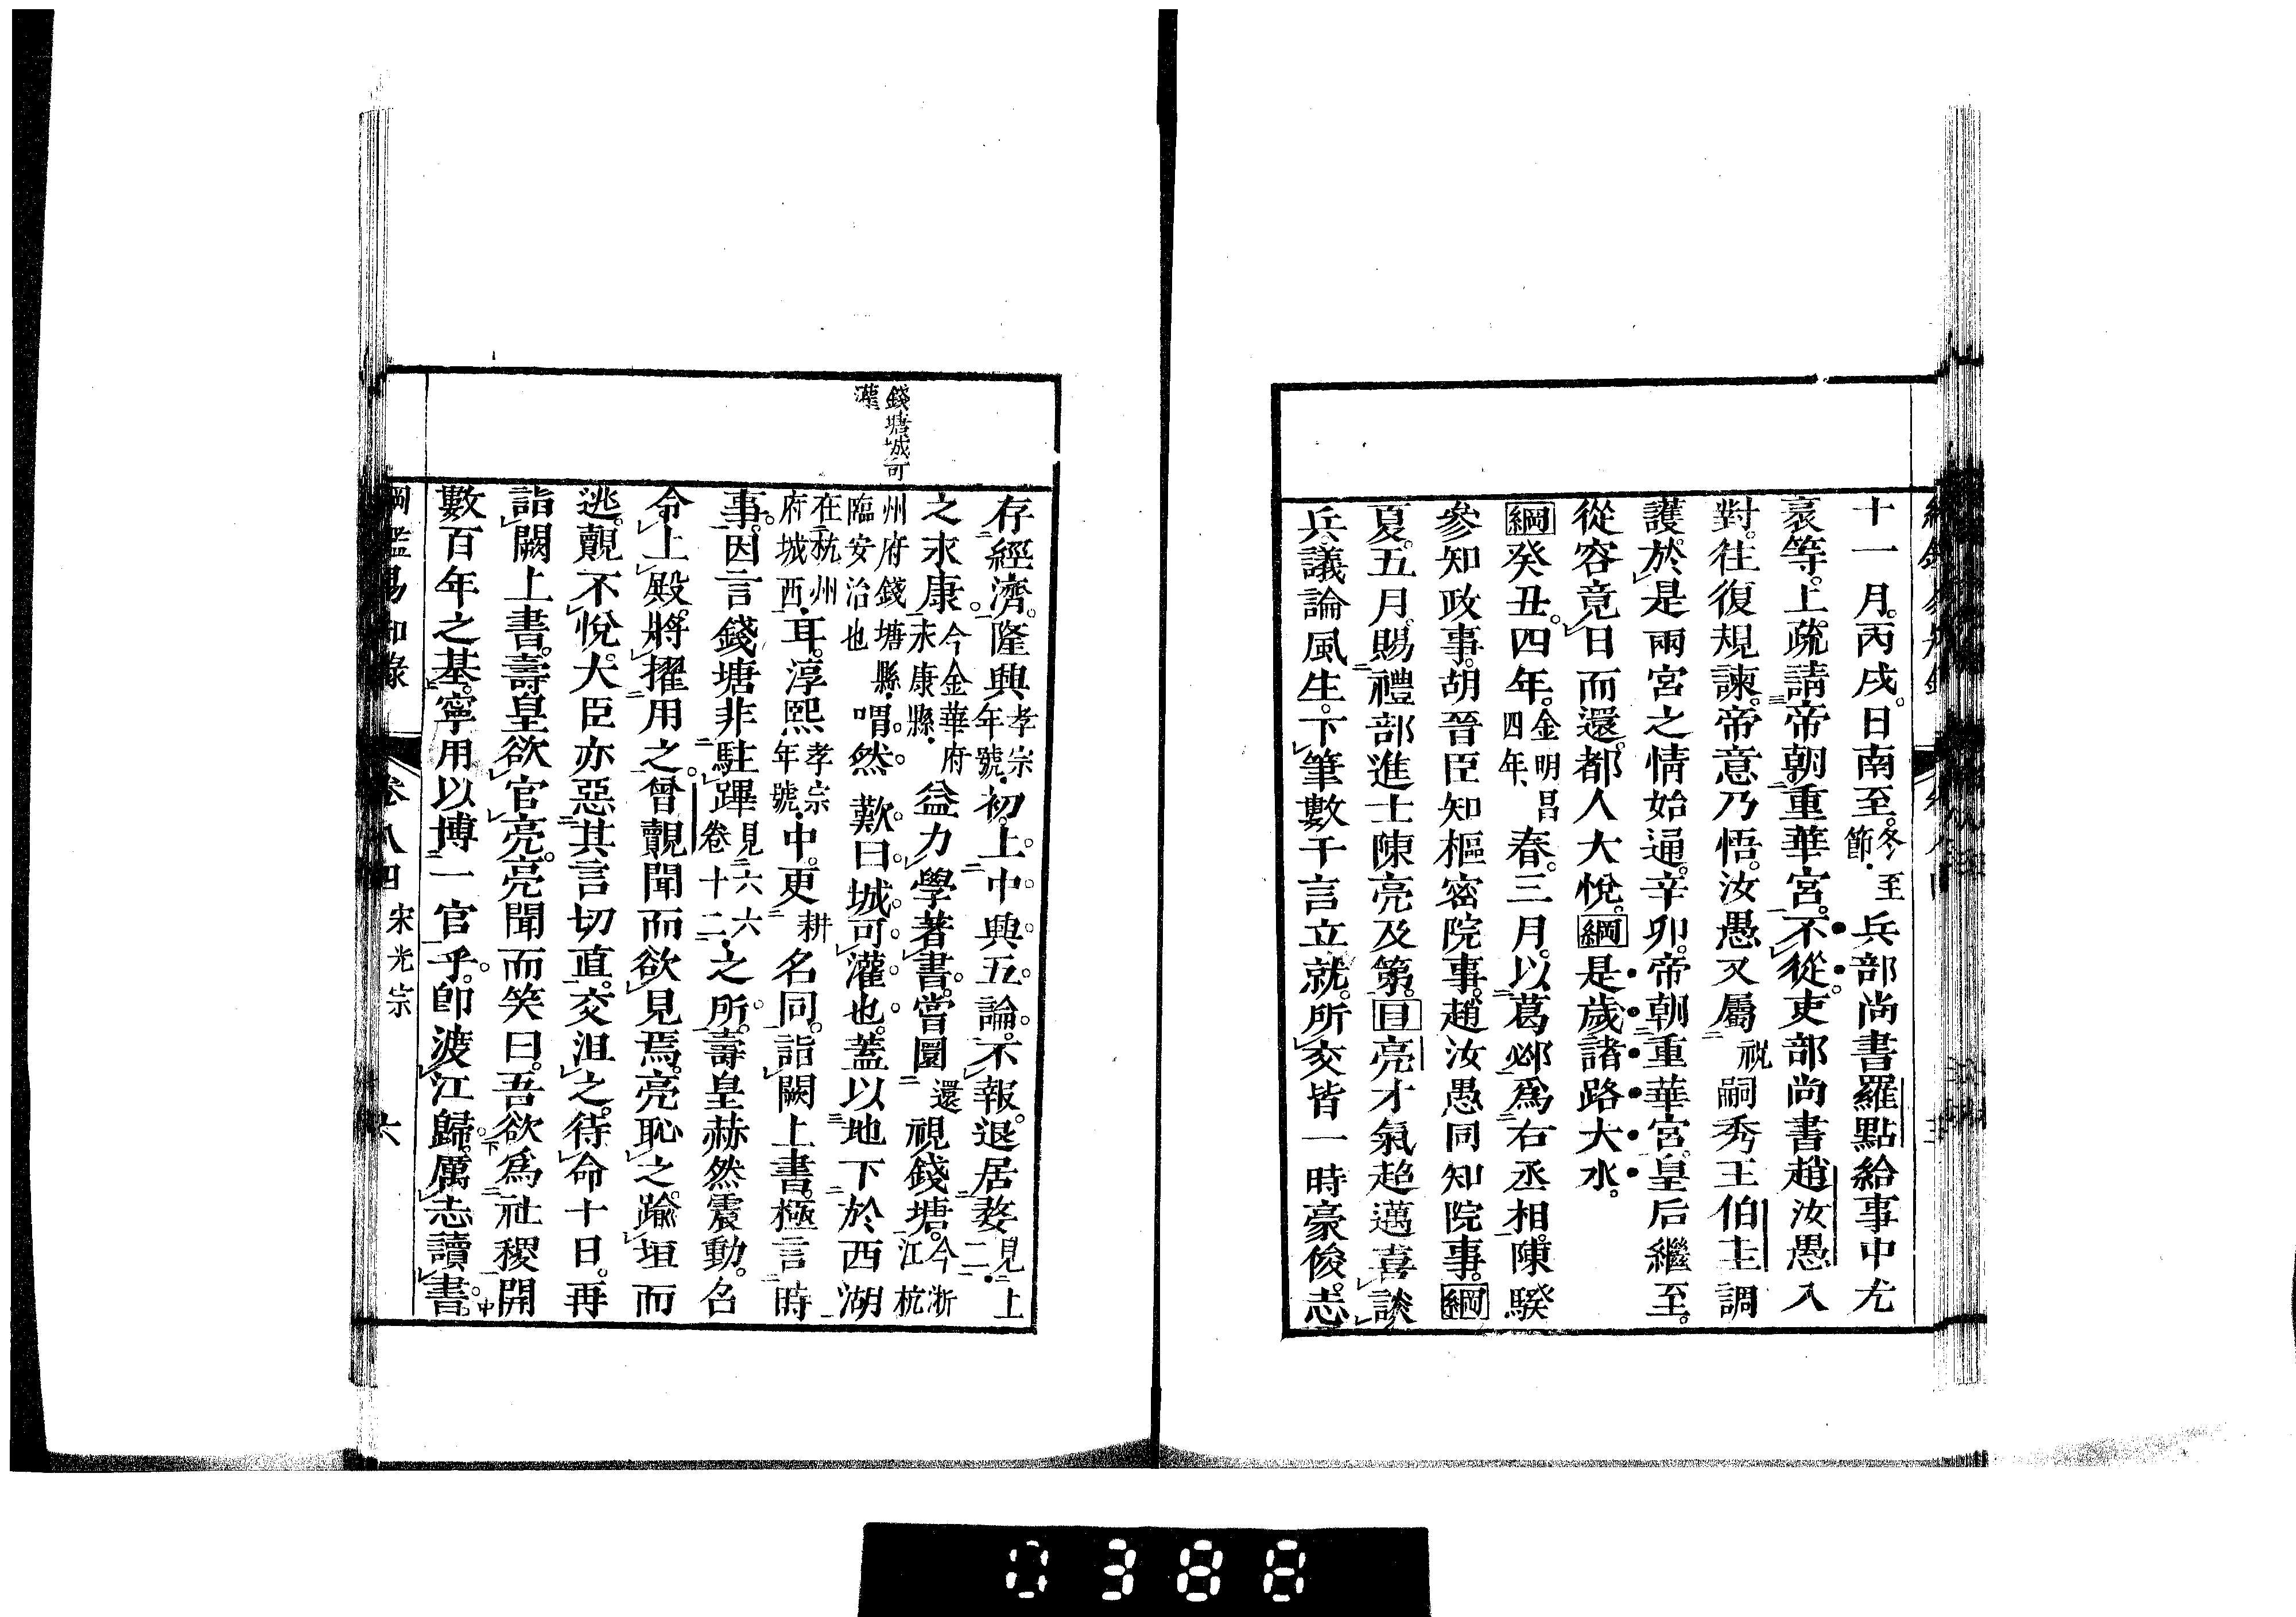 十一月。丙戌。日南至。冬至節。兵部尚書羅點給事中尤
袤等。上疏請帝朝重華宮。不從。吏部尚書趙汝愚入
對。往復規諫。帝意乃悟。汝愚又屬祝嗣秀王伯圭調
護。於是兩宮之情始通。辛卯。帝朝重華宮。皇后繼至。
從容竟日而還。都人大悅。綱是歲諸路大水。
綱癸丑。四年。金明昌四年、春。三月。以葛邲爲右丞相。陳騤
參知政事。胡晉臣知樞密院事。趙汝愚同知院事。綱
夏。五月。賜禮部進士陳亮及第。目亮才氣超邁喜談
兵。議論風生。下筆數千言立就。所交皆一時豪俊。志
存經濟。隆興孝宗年號。初。上中興五論。不報。退居婺見上二。
之永康。今金華府永康縣。益力學著書。嘗圜還視錢塘。今浙江杭
州府錢塘縣。臨安治也喟然歎曰。城可灌也。蓋以地下於西湖
在杭州府城西耳。淳熙孝宗年號。中。更耕名同。詣闕上書。極言時
事。因言錢塘非駐蹕見六六卷十二。之所。壽皇赫然震動。召
令上殿。將擢用之。曾覿聞而欲見焉。亮恥之。踰垣而
逃。覿不悅。大臣亦惡其言切直。交沮之。待命十日。再
詣闕上書。壽皇欲官亮。亮聞而笑曰。吾欲爲社稷開
數百年之基。寧用以博一官乎。卽渡江歸。厲志讀書。
錢塘城可
灌
綱鑑易知錄 卷八四 宋光宗 六
0388